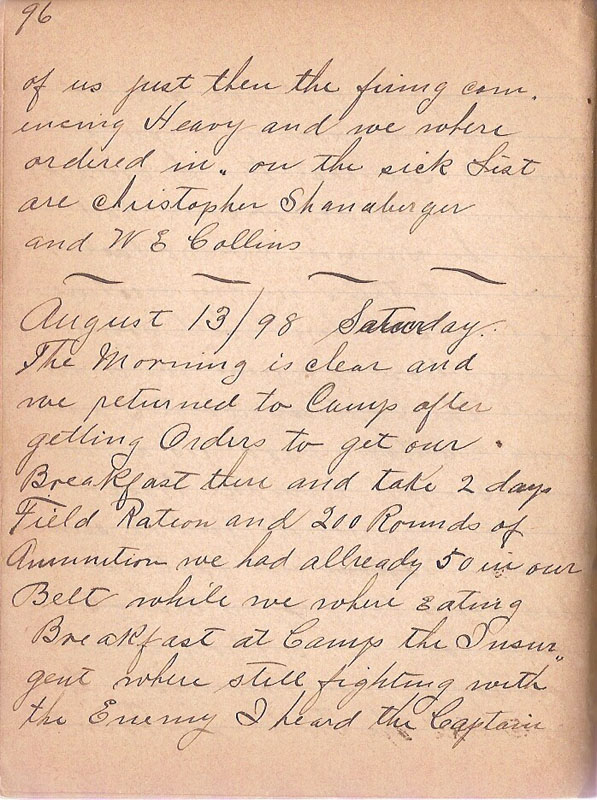 96
of us just then the firing com.
encing Heavy and we where
ordered in„ on the sick List
are Christopher Shanaberger
and W E Collins
August 13/98 Saturday.
The Morning is clear and
we returned to Camp after
getting Orders to get our
Breakfast there and take 2 days
Field Ration and 200 Rounds of
Ammunition we had allready 50 in our
Belt while we where Eating
Breakfast at Camp the Insur„
gent where still fighting with
the Enemy I heard the Captain